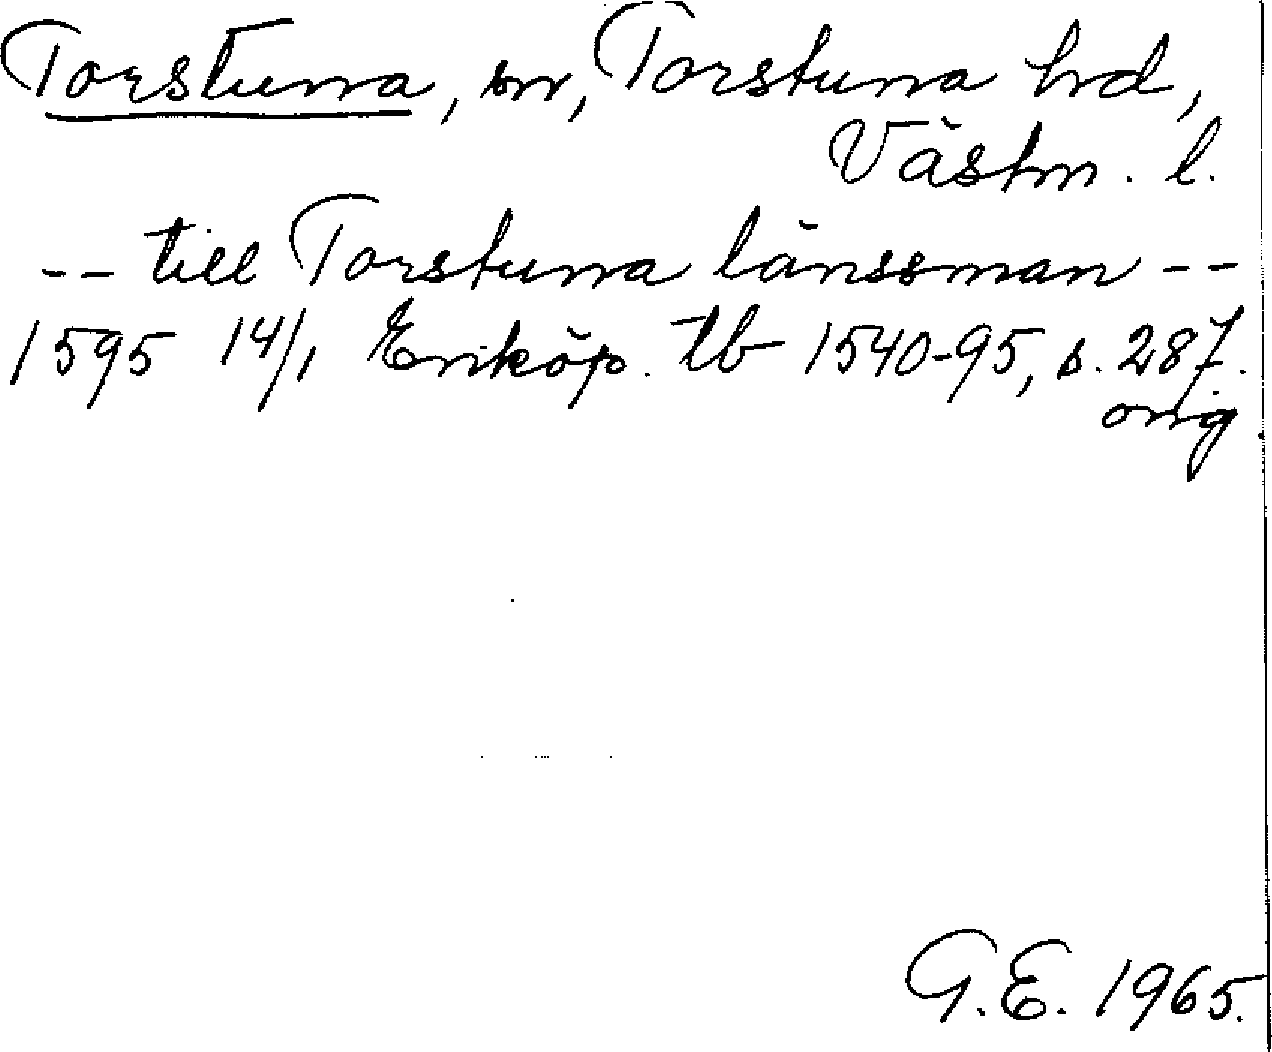 Torstuna, sn, Torstuna hrd,
Västm. l.
-- till Torstuna länssman --
1595 14/1 Enköp. tb 1540-95, s. 287.
orig.
G.E. 1965.